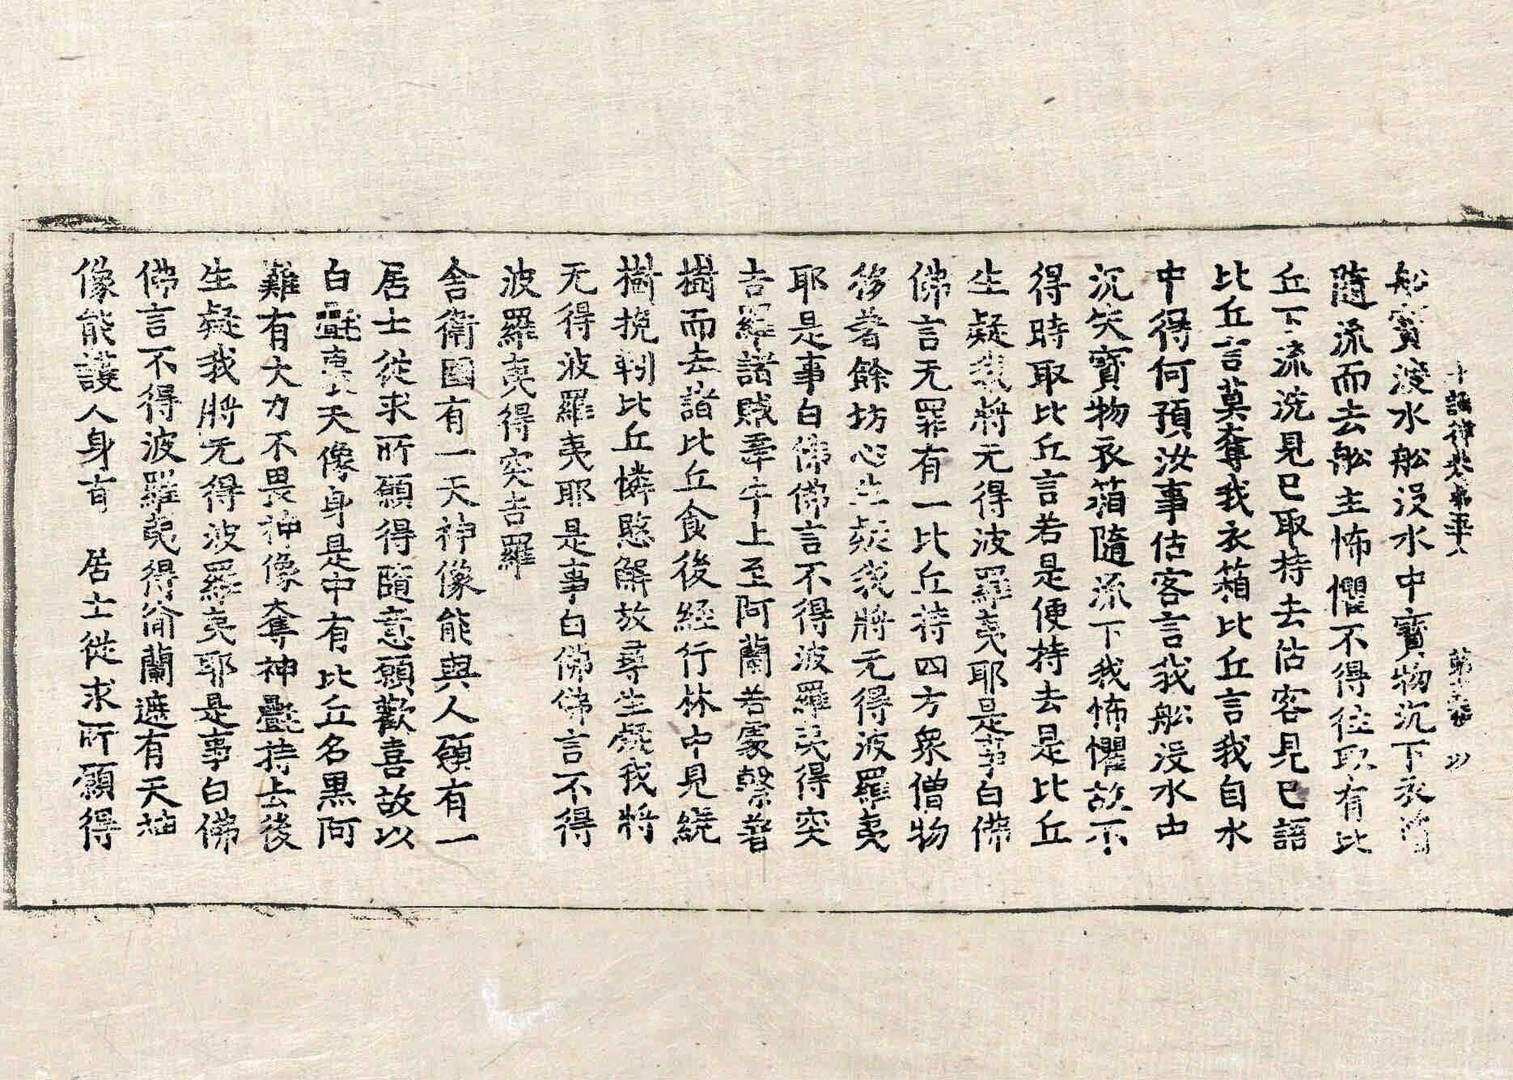 十誦律卷第五十八 第十五卷 功
船寶渡水船沒水中寶物沉下衣箱
隨流而去舩主怖懼不得往取有比
丘下流洗見已取持去估客見已語
比丘言莫奪我衣箱比丘言我自水
中得何預汝事估客言我舩沒水中
沉失寶物衣箱隨流下我怖懼故不
得時取比丘言若是便持去是比丘
生疑我將无得波羅夷耶是事白佛
佛言无罪有一比丘持四方衆僧物
移著餘坊心生疑我將无得波羅夷
耶是事白佛佛言不得波羅夷得突
吉羅諸賊牽牛上至阿蘭若處繫著
樹而去諸比丘食後経行林中見繞
樹挽靷比丘憐愍解放尋生疑我將
无得波羅夷耶是事白佛佛言不得
波羅夷得突吉羅
舍衛國有一天神像能與人願有一
居士從求所願得隨意願歡喜故以
白㲲裹天像身是中有比丘名黒阿
難有大力不畏神像奪神㲲持去後
生疑我將无得波羅夷耶是事白佛
佛言不得波羅夷得偷蘭遮有天神
像能護人身有 居士從求所願得